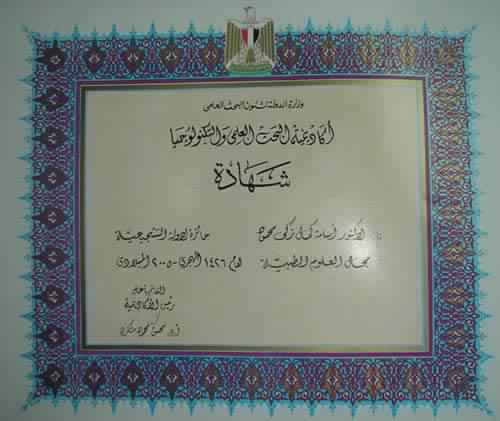 وزارة الدولة لشئون البحث العلمى
أكاديمية البحث العلمى والتكنولوجيا
شهادة
الدكتور أسامة كمال زكى جائزة الدولة التشجيعية
مجال العلوم الطبية لعام ١٤٢٦ الهجرى - ٢٠٠٥ الميلادى
القائم بأعمال
رئيس الأكاديمية
أ.د. محسن محمود شكرى